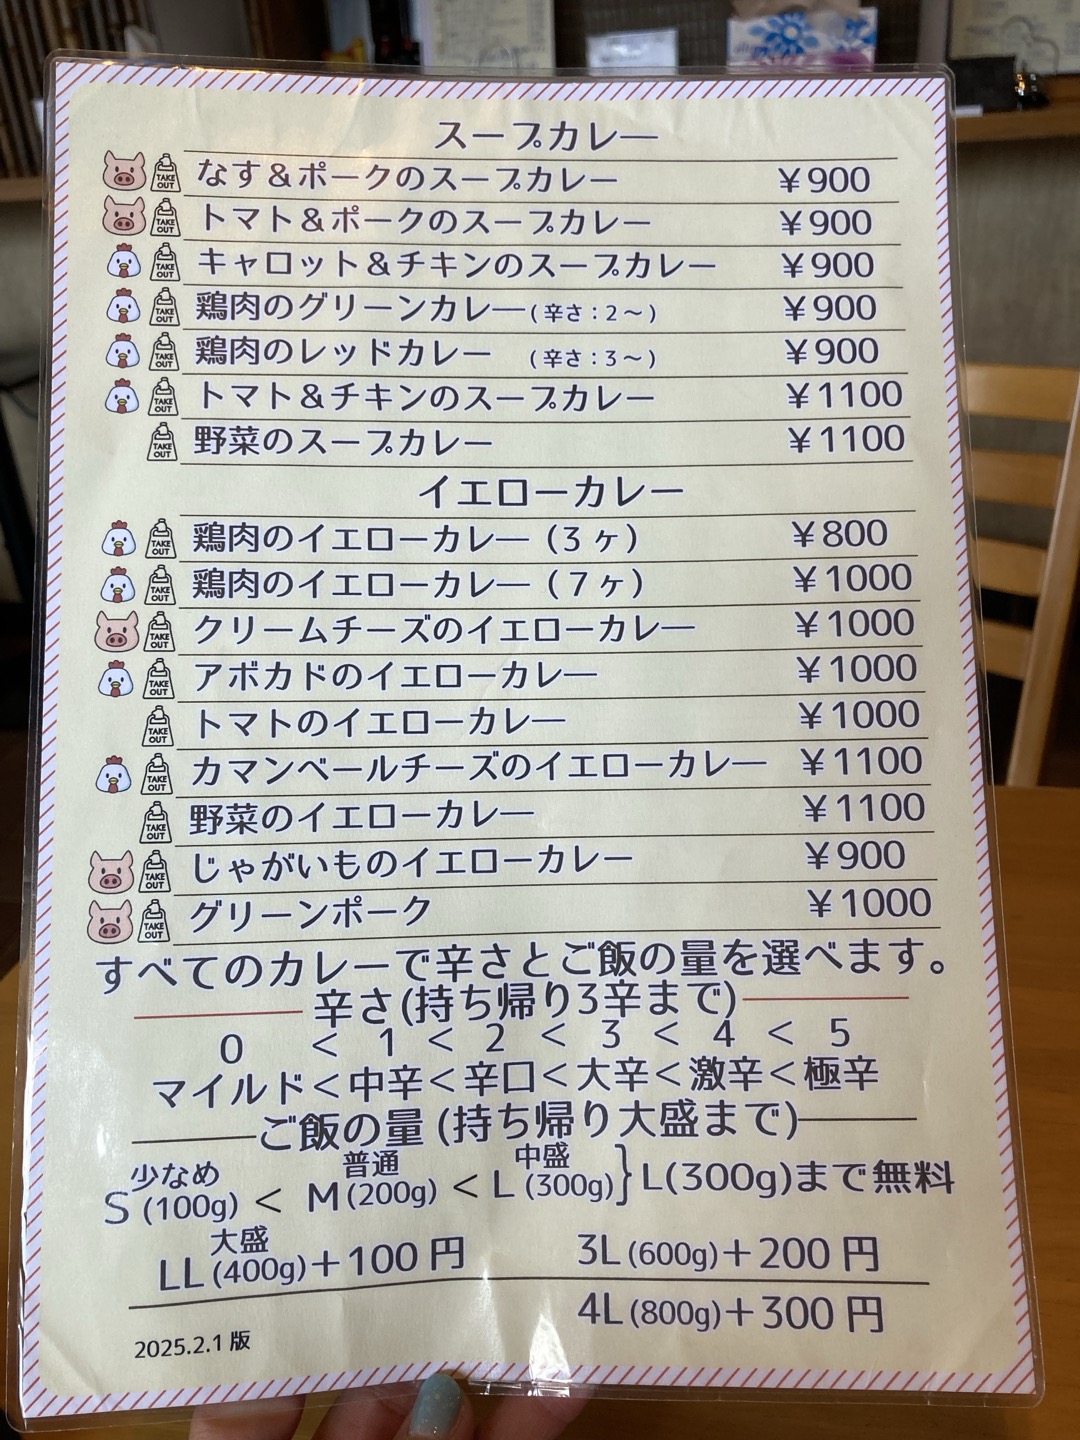 スープカレー
TAKE OUT なす＆ポークのスープカレー ￥900
TAKE OUT トマト＆ポークのスープカレー ￥900
TAKE OUT キャロット＆チキンのスープカレー ￥900
TAKE OUT 鶏肉のグリーンカレー(辛さ：2～) ￥900
TAKE OUT 鶏肉のレッドカレー (辛さ：3～) ￥900
TAKE OUT トマト＆チキンのスープカレー ￥1100
TAKE OUT 野菜のスープカレー ￥1100
イエローカレー
TAKE OUT 鶏肉のイエローカレー（3ヶ） ￥800
TAKE OUT 鶏肉のイエローカレー（7ヶ） ￥1000
TAKE OUT クリームチーズのイエローカレー ￥1000
TAKE OUT アボカドのイエローカレー ￥1000
TAKE OUT トマトのイエローカレー ￥1000
TAKE OUT カマンベールチーズのイエローカレー ￥1100
TAKE OUT 野菜のイエローカレー ￥1100
TAKE OUT じゃがいものイエローカレー ￥900
TAKE OUT グリーンポーク ￥1000
すべてのカレーで辛さとご飯の量を選べます。
辛さ(持ち帰り3辛まで)
0 < 1 < 2 < 3 < 4 < 5
マイルド<中辛<辛口<大辛<激辛<極辛
ご飯の量 (持ち帰り大盛まで)
少なめ 普通 中盛
S (100g) < M (200g) < L (300g)}L(300g)まで無料
大盛
LL (400g)＋100 円 3L (600g)＋200 円
4L (800g)＋300 円
2025.2.1 版